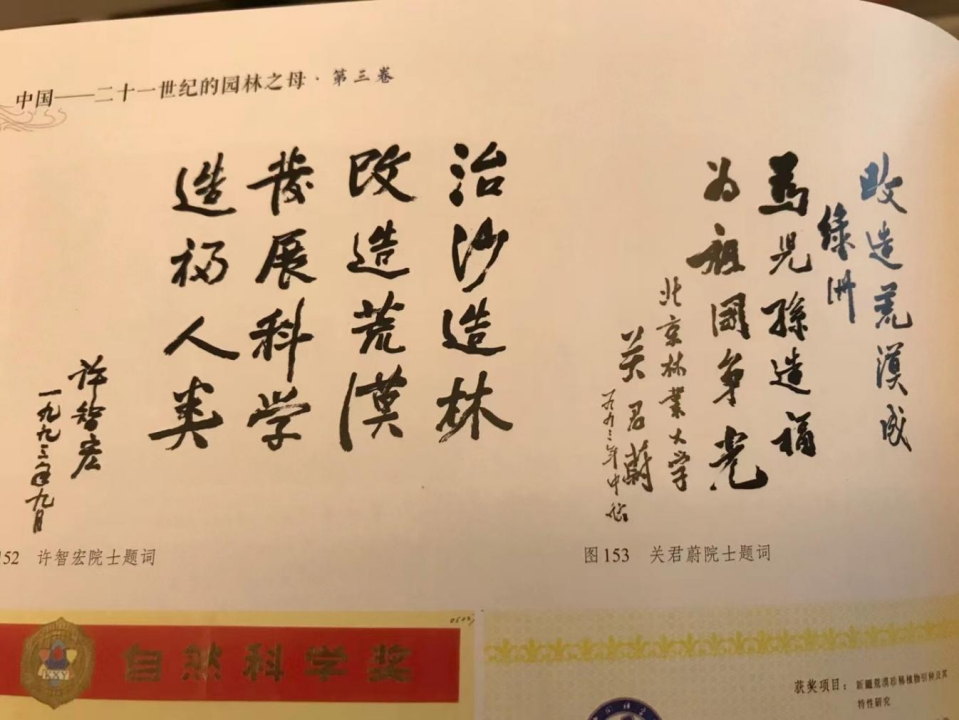 中国——二十一世纪的园林之母·第三卷
治沙造林
改造荒漠
发展科学
造福人类
许智宏
一九九三年九月
改造荒漠成
绿洲
為兒孫造福
为祖國争光
北京林业大学
关君蔚
152 许智宏院士题词
图153 关君蔚院士题词
自然科学奖
KXY
获奖项目：新疆荒漠珍稀植物引种及其
特性研究